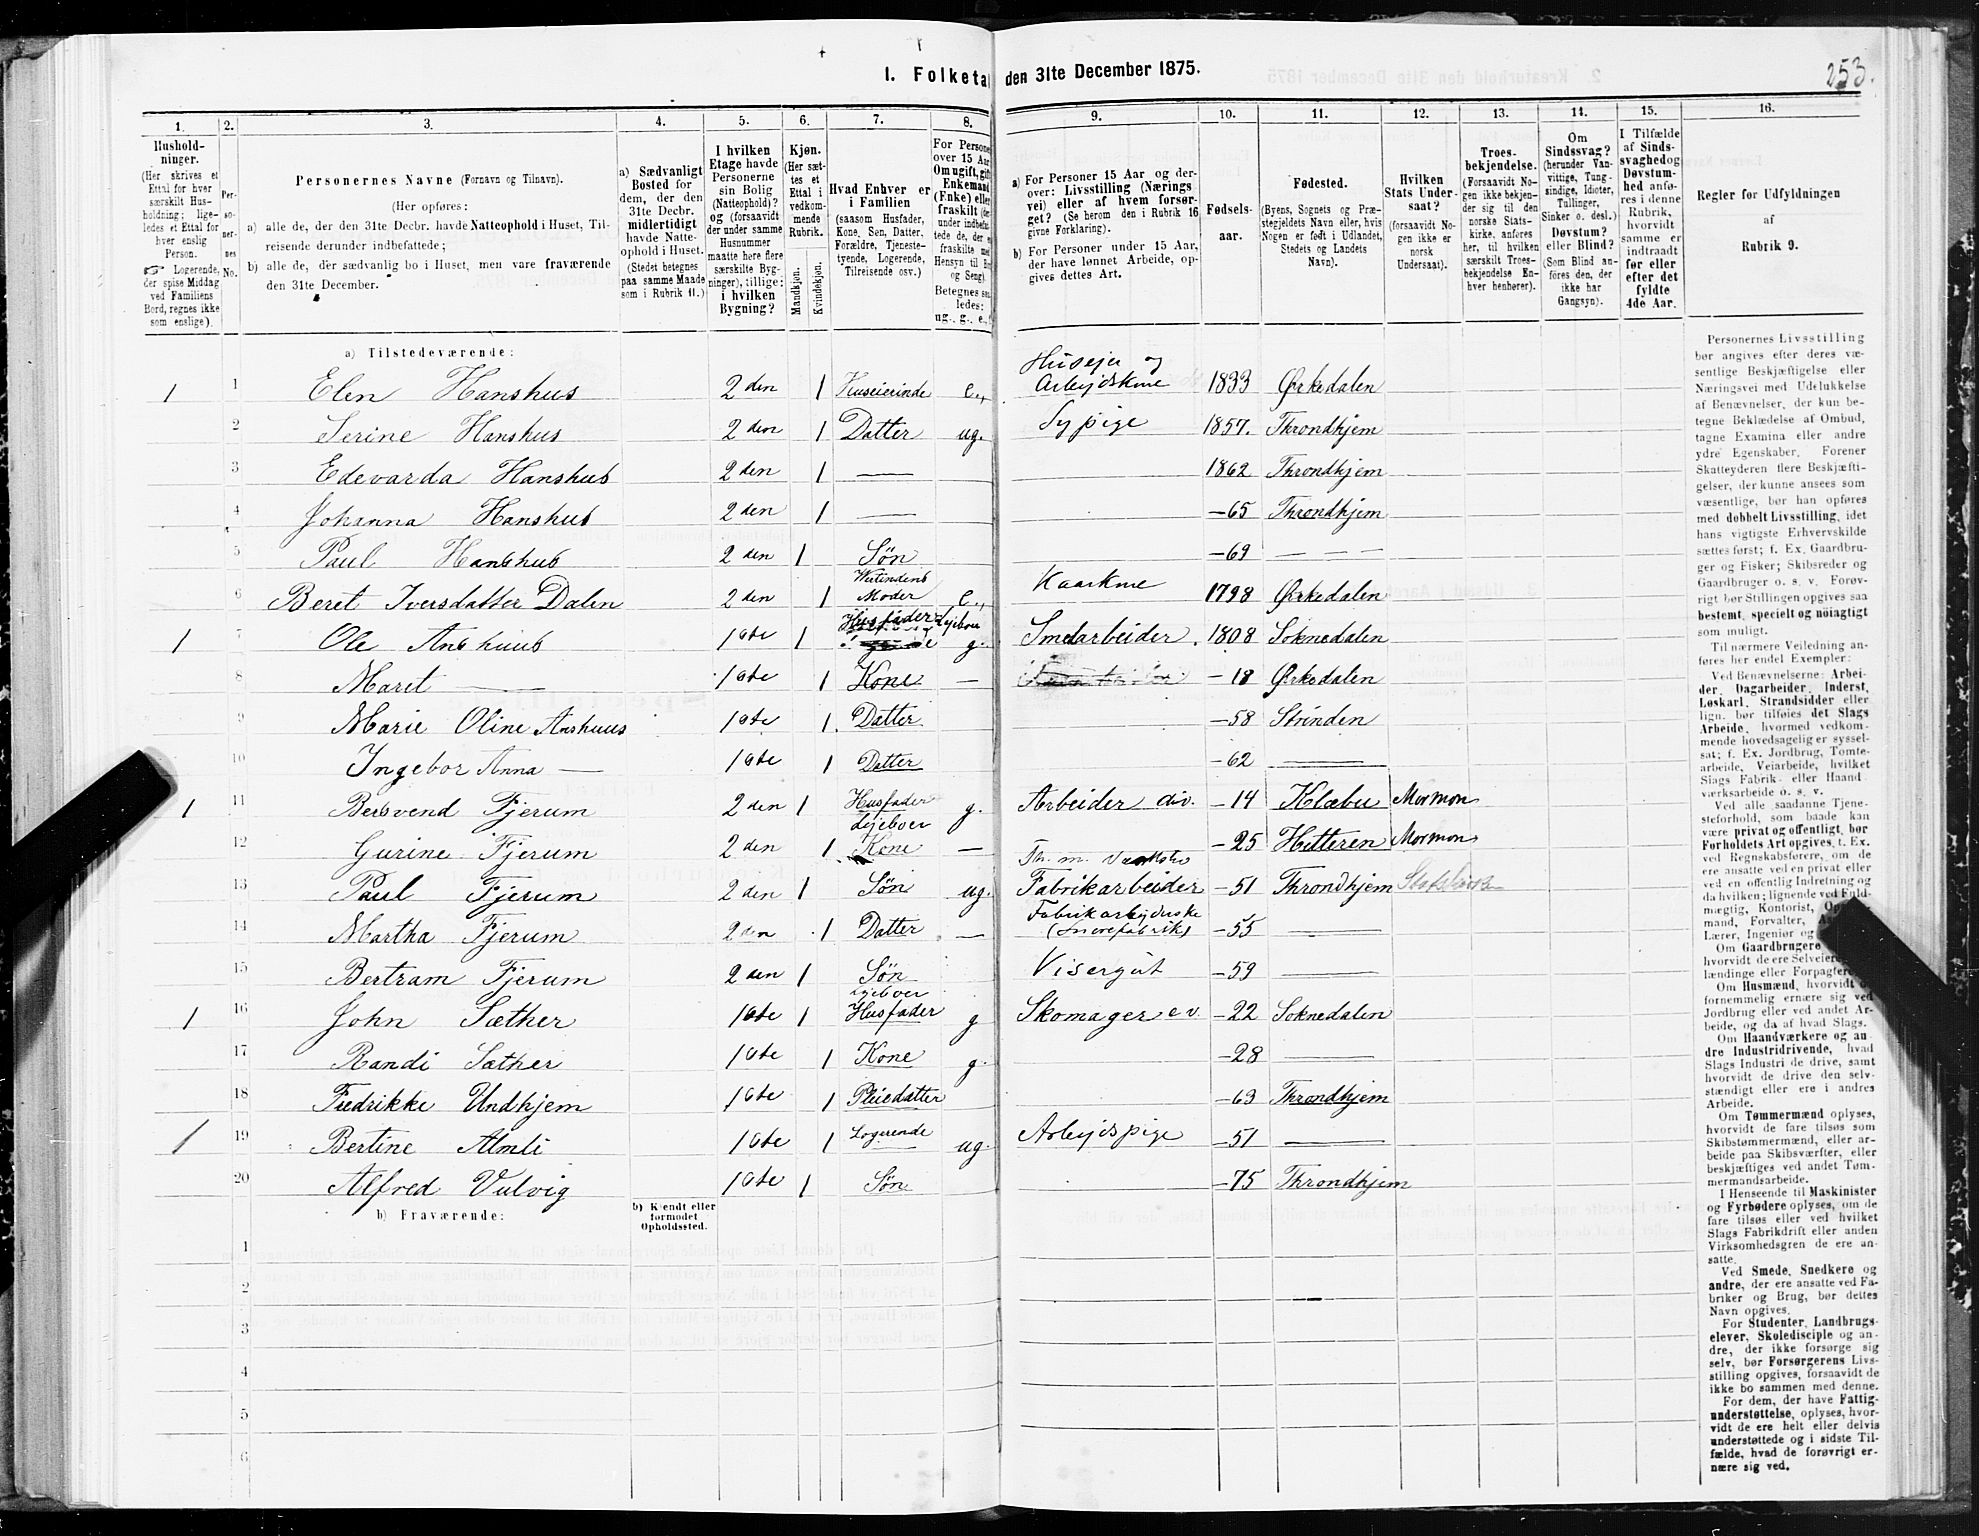 I. Folketal den 31te December 1875.
253.
1. 2. 3. 4. 5. 6. 7. 8. 9. 10. 11. 12. 13. 14. 15. 16.
Hushold-
ninger.
(Her skrives et
Ettal for hver
særskilt Hus-
holdning; lige-
ledes et Ettal for
hver enslig
Person.
☞ Logerende,
der spise Middag
ved Familiens
Bord, regnes ikke
som enslige).
Per-
so-
ner-
nes
No.
Personernes Navne (Fornavn og Tilnavn).
(Her opføres:
a) alle de, der den 31te Decbr. havde Natteophold i Huset, Til-
reisende derunder indbefattede;
b) alle de, der sædvanlig bo i Huset, men vare fraværende
den 31te December.
a) Sædvanligt
Bosted for
dem, der den
31te Decbr.
midlertidigt
havde Natte-
ophold i Huset.
(Stedet betegnes
paa samme Maade
som i Rubrik 11.)
I hvilken
Etage havde
Personerne
sin Bolig
(Natteophold)?
og (forsaavidt
der under samme
Husnummer
maatte høre flere
særskilte Byg-
ninger), tillige:
i hvilken
Bygning?
Kjøn.
(Her sæt-
tes et
Ettal i
vedkom-
mende
Rubrik.
Mandkjøn.
Kvindekjøn.
Hvad Enhver er
i Familien
(saasom Husfader,
Kone, Søn, Datter,
Forældre, Tjeneste-
tyende, Logerende,
Tilreisende osv.)
For Persone
over 15 Aar
Om ugift, gift
Enkemand
(Enke) elle
fraskilt (de
under indbefat
tede de, der e
fraskilte med
Hensyn til Bo
og Seng)
Betegnes saa
ledes:
ug., g., e.,
a) For Personer 15 Aar og der-
over: Livsstilling (Nærings
vei) eller af hvem forsør-
get? (Se herom den i Rubrik 16
givne Forklaring).
b) For Personer under 15 Aar,
der have lønnet Arbeide, op-
gives dettes Art.
Fødsels-
aar.
Fødested.
(Byens, Sognets og Præ-
stegjeldets Navn eller, hvis
Nogen er født i Udlandet,
Stedets og Landets
Navn).
Hvilken
Stats Under-
saat?
(forsaavidt No-
gen ikke er
norsk
Undersaat).
Troes-
bekjendelse.
(Forsaavidt No-
gen ikke bekjen-
der sig til den
norske Stats-
kirke, anføres
her, til hvilken
særskilt Troes-
bekjendelse En-
hver henhører).
Om
Sindssvag?
(herunder Van-
vittige, Tung-
sindige, Idioter,
Tullinger,
Sinker o. desl.)
Døvstum?
eller Blind?
(Som Blind an-
føres den, der
ikke har
Gangsyn).
I Tilfælde
af Sinds-
svaghed og
Døvstum-
hed anfø-
res i denne
Rubrik,
hvorvidt
samme er
indtraadt
før eller
efter det
fyldte
4de Aar.
Regler for Udfyldningen
af
Rubrik 9.
a) Tilstedeværende:
Huseier og
1 1 Elen Hanshus 2den 1 Huseierinde e., Arbejdskone 1833 Ørkedalen
2 Serine Hanshus 2den 1 Datter ug. Sypige 1857. Throndhjem
3 Edevarda Hanshus 2den 1 — 1862 Throndhjem
4 Johanna Hanshus 2den 1 — —65 Throndhjem
5 Paul Hanshus 2den 1 Søn —69 — — —
6 Beret Iversdatter Dalen 2den 1 Moder e., Kaarkone 1798 Ørkedalen
Husfader Lejeboer
1 7 Ole Anshuus 1ste 1 g. Smedarbeider. 1808 Soknedalen
8 Maret — 1ste 1 Kone — —18 Ørkedalen
9 Marie Oline Anshuus 1ste 1. Datter —58 Strinden
10 Ingebor Anna — 1ste 1 Datter —62 —
1 11 Bersvend Fjerum 2den 1 Husfader Lejeboer g. Arbeider div. —14 Klæbu Mormon
12 Gurine Fjerum 2den 1 Kone — —25 Hitteren Mormon
Th. m. Værksted
13 Paul Fjerum 2den 1 Søn ug. Fabrikarbeider —51 Throndhjem
14 Martha Fjerum 2den 1 Datter — Fabrikarbejderske —55 —
15 Bertram Fjerum 2den 1 Søn Visergut —59 —
Lejeboer
1 16 John Sæther 1ste 1 Husfader g Skomager e v. —22 Soknedalen
17 Randi Sæther 1ste 1 Kone g. —28 —
18 Fredrikke Undhjem 1ste 1 Pleiedatter —63 Throndhjem
1 19 Bertine Almli 1ste 1 Logerende ug. Arbejdspige —51 —
20 Alfred Vulvig 1ste 1 Søn —75 Throndhjem
b) Fraværende:
b) Kjendt eller
formodet
Opholdssted.
1
2
3
4
5
6
Personernes Livsstilling
bør angives efter deres væ-
sentlige Beskjæftigelse eller
Næringsvei med Udelukkelse
af Benævnelser, der kun be-
tegne Beklædelse af Ombud,
tagne Examina eller andre
ydre Egenskaber. Forener
Skatteyderen flere Beskjæfti-
gelser, der kunne ansees som
væsentlige, bør han opføres
med dobbelt Livsstilling, idet
hans vigtigste Erhvervskilde
sættes først; f. Ex. Gaardbru-
ger og Fisker; Skibsreder og
Gaardbruger o. s. v. Forøv-
rigt bør Stillingen opgives saa
bestemt, specielt og nøiagtigt
som muligt.
Til nærmere Veiledning an-
føres her endel Exempler:
Ved Benævnelserne: Arbei-
der, Dagarbeider, Inderst,
Løskarl, Strandsidder eller
lign. bør tilføies det Slags
Arbeide, hvormed vedkom-
mende hovedsagelig er syssel-
sat; f. Ex. Jordbrug, Tomte-
arbeide, Veiarbeide, hvilket
Slags Fabrik- eller Haand-
værksarbeide o. s. v.
Ved alle saadanne Tjene-
steforhold, som baade kan
være privat og offentligt, bør
Forholdets Art opgives, f. Ex.
ved Regnskabsførere, om de
ere ansatte ved en privat eller
ved en offentlig Indretning og
da hvilken; lignende ved Fuld-
mægtig, Kontorist,
mand, Forvalter,
Lærer, Ingeniør og
Om Gaardbrugere
hvorvidt de ere Selveiere,
lændinge eller Forpagtere.
Om Husmænd, hvorvidt
fornemmelig ernære sig ved
Jordbrug eller ved andet Ar-
beide, og da af hvad Slags.
Om Haandværkere og an-
dre Industridrivende, hvad
Slags Industri de drive, samt
hvorvidt de drive den selv-
stændigt eller ere i andres
Arbeide.
Om Tømmermænd oplyses,
hvorvidt de fare tilsøs som
Skibstømmermænd, eller ar-
beide paa Skibsværfter, eller
beskjæftiges ved andet Tøm-
mermandsarbeide.
I Henseende til Maskinister
og Fyrbødere oplyses, om de
fare tilsøs eller ved hvilket
Slags Fabrikdrift eller anden
Virksomhedsgren de ere an-
satte.
Ved Smede, Snedkere og
andre, der ere ansatte ved Fa-
briker og Brug, bør dettes
Navn opgives.
For Studenter, Landbrugs-
elever, Skoledisciple og an-
dre, der ikke forsørge sig
selv, bør Forsørgerens Livs-
stilling opgives, forsaavidt de
ikke bo sammen med denne.
For dem, der have Fattig-
understøttelse, oplyses, hvor-
vidt de ere helt eller delvis
understøttede og i sidste Til-
fælde, hvad de forøvrigt er-
nære sig ved.